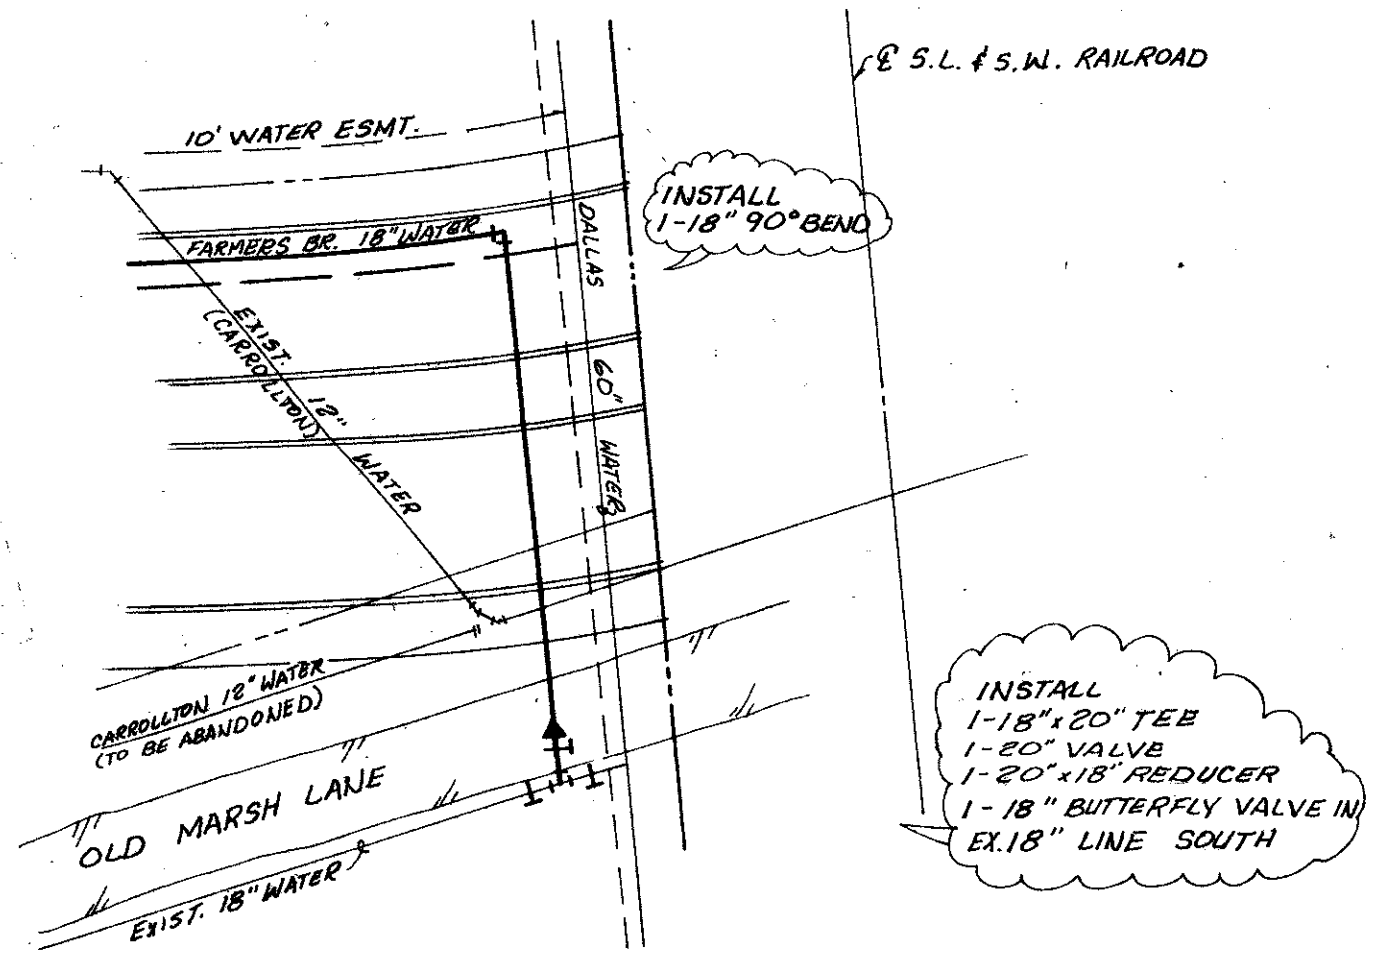 ℄ S.L. & S.W. RAILROAD
10' WATER ESMT.
INSTALL
1-18" 90° BEND
FARMERS BR. 18" WATER
DALLAS 60" WATER
EXIST. 12" WATER
(CARROLLTON)
CARROLLTON 12" WATER
(TO BE ABANDONED)
OLD MARSH LANE
EXIST. 18" WATER
INSTALL
1-18" x 20" TEE
1-20" VALVE
1-20" x 18" REDUCER
1-18" BUTTERFLY VALVE IN
EX. 18" LINE SOUTH